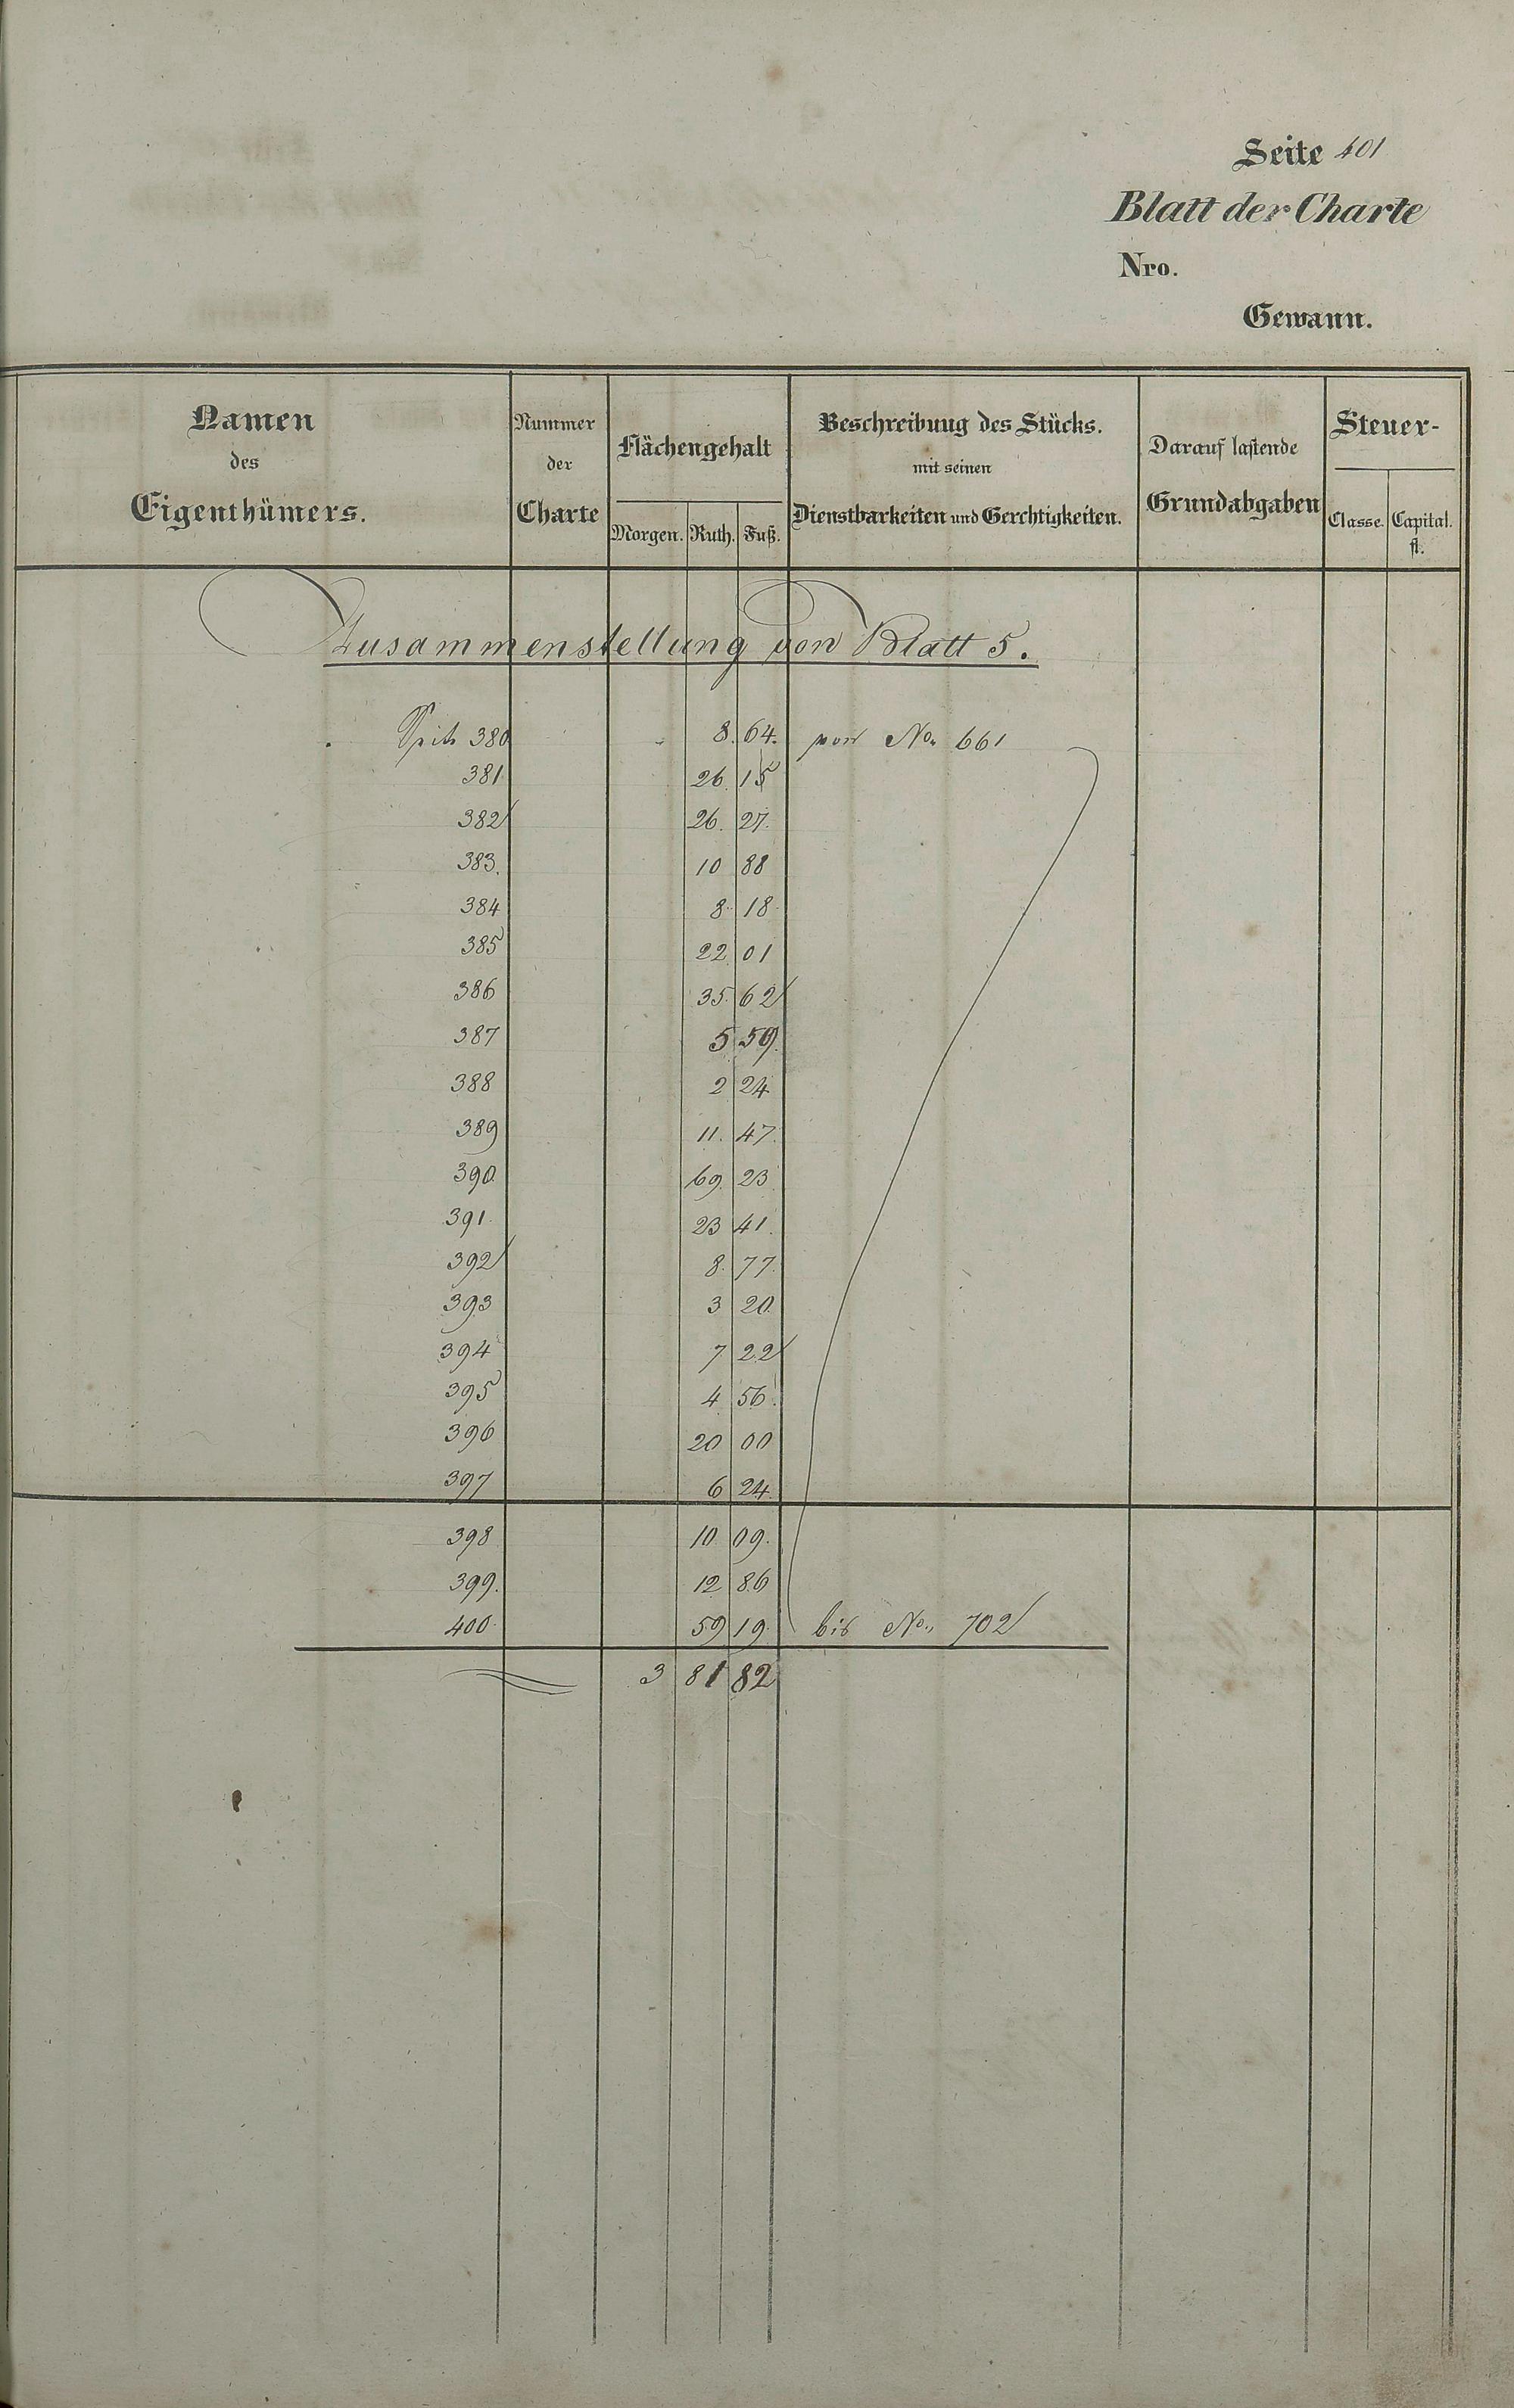 Seite 401
Blatt der Charte
Nro.
Gewann.
Namen des Eigenthümers. Nummer der Charte Flächengehalt Morgen. Ruth. Fuß. Beschreibung des Stücks. mit seinen Dienstbarkeiten und Gerechtigkeiten. Darauf lastende Grundabgaben Steuer- Classe. Capital. fl.
Zusammenstellung von Blatt 5.
Seite 380 8. 64. von No. 661
381 26. 15
382 26. 27.
383. 10 88
384 8. 18
385 22 01
386 35. 62
387 5 59.
388 2 24
389 11. 47.
390 69. 23
391. 23 41.
392 8. 77.
393 3 20.
394 7 22
395 4 56.
396 20 00
397 6 24.
398 10. 09.
399. 12 86
400. 59 19. bis No. 702
3 81 82